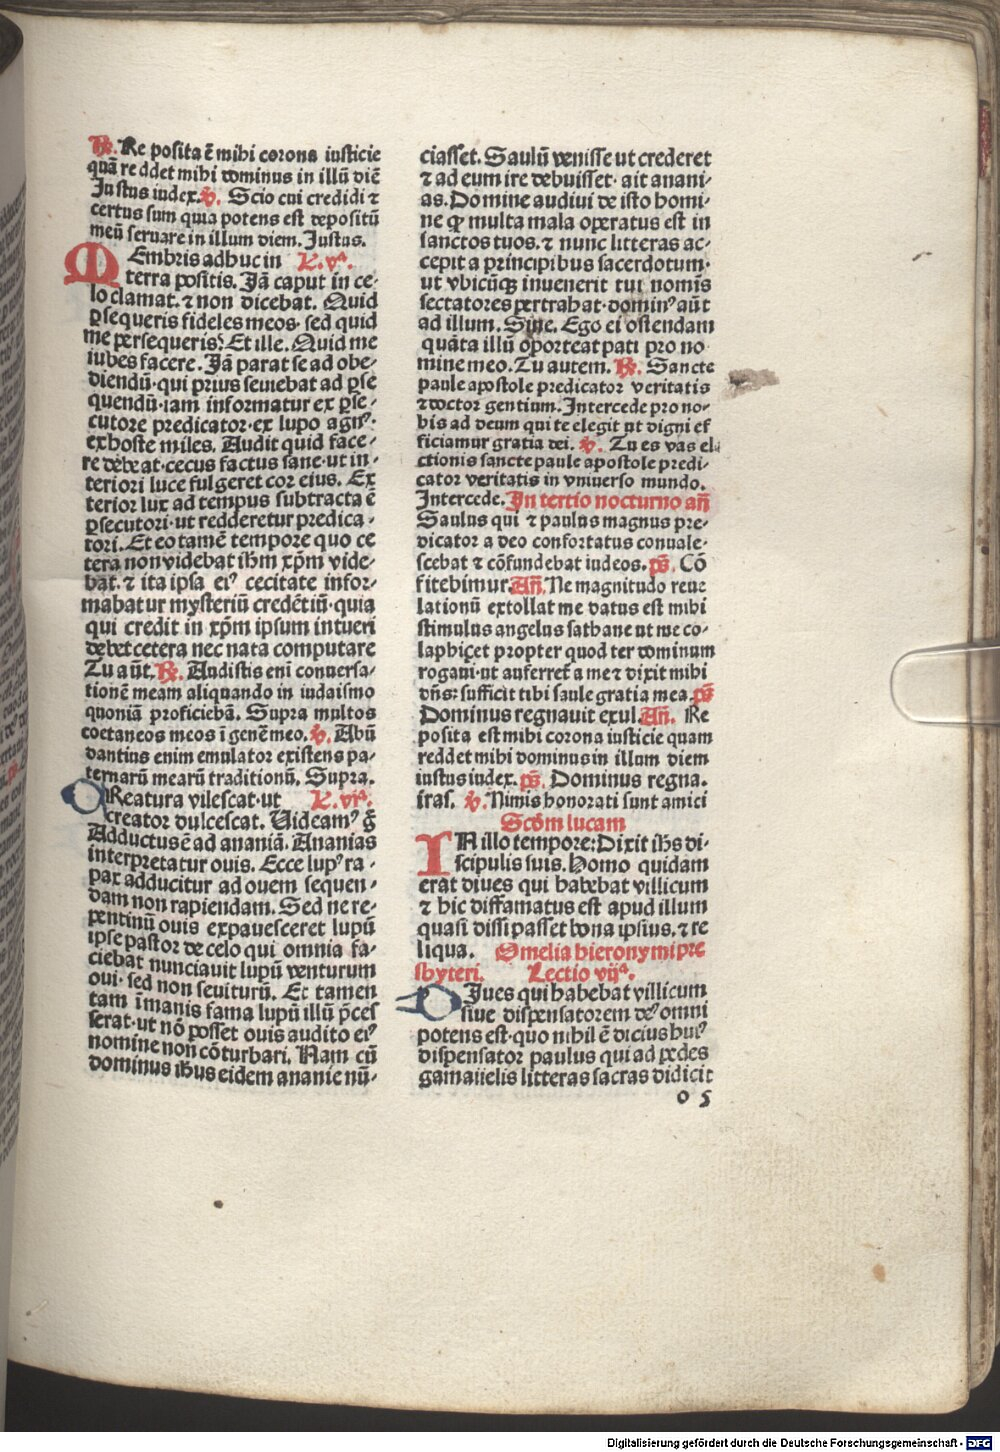 ℟. Re posita ē mihi corona iusticie
quā reddet mihi dominus in illū diē
Justus iudex. ℣. Scio cui credidi ⁊
certus sum quia potens est depositū
meū seruare in illum diem. Justus.
MEmbris adhuc in L. vᵃ.
terra positis. Jā caput in ce⸗
lo clamat. ⁊ non dicebat. Quid
ꝑsequeris fideles meos· sed quid
me persequeris? Et ille. Quid me
iubes facere. Jā parat se ad obe⸗
diendū· qui prius seuiebat ad ꝑse
quendū· iam informatur ex ꝑse⸗
cutore predicator· ex lupo agnꝰ·
ex hoste miles. Audit quid face⸗
re debeat· cecus factus sane· ut in⸗
teriori luce fulgeret cor eius. Ex
terior lux ad tempus subtracta ē
ꝑsecutori· ut redderetur predica⸗
tori. Et eo tamē tempore quo ce
tera non videbat ihm xp̄m vide⸗
bat. ⁊ ita ipsa eiꝰ cecitate infor⸗
mabatur mysteriū credētiū· quia
qui credit in xp̄m ipsum intueri
debet cetera nec nata computare
Tu aūt. ℟. Audistis eni conuersa⸗
tionē meam aliquando in iudaismo
quoniā proficiebā. Supra multos
coetaneos meos ī genē meo. ℣. Abū
dantius enim emulator existens pa⸗
ternarū mearū traditionū. Supra.
CReatura vilescat· ut L. viᵃ.
creator dulcescat. Uideamꝰ ḡ
Adductus ē ad ananiā. Ananias
interpretatur ouis. Ecce lupꝰ ra⸗
pax adducitur ad ouem sequen⸗
dam non rapiendam. Sed ne re⸗
pentinū ouis expauesceret lupū
ipse pastor de celo qui omnia fa⸗
ciebat nunciauit lupū venturum
oui· sed non seuiturū. Et tamen
tam īmanis fama lupū illū p̄ces
serat· ut nō posset ouis audito eiꝰ
nomine non cōturbari. Nam cū
dominus ihus eidem ananie nū⸗
ciasset. Saulū venisse ut crederet
⁊ ad eum ire debuisset· ait anani⸗
as. Domine audiui de isto homi⸗
ne ꝙ multa mala operatus est in
sanctos tuos. ⁊ nunc litteras ac⸗
cepit a principibus sacerdotum·
ut vbicūqꝫ inuenerit tui nomis
sectatores pertrahat· dominꝰ aūt
ad illum. Sine. Ego ei ostendam
quāta illū oporteat pati pro no
mine meo. Tu autem. ℟. Sancte
paule apostole predicator veritatis
⁊ doctor gentium. Intercede pro no⸗
bis ad deum qui te elegit ut digni ef
ficiamur gratia dei. ℣. Tu es vas el⸗
ctionis sancte paule apostole predi⸗
cator veritatis in vniuerso mundo.
Intercede. In tertio nocturno an̄
Saulus qui ⁊ paulus magnus pre⸗
dicator a deo confortatus conuale⸗
scebat ⁊ cōfundebat iudeos. ps̄. Cō
fitebimur. An̄. Ne magnitudo reue
lationū extollat me datus est mihi
stimulus angelus sathane ut me co⸗
laphiçet propter quod ter dominum
rogaui· ut auferret̄ a me ⁊ dixit mihi
dn̄s: sufficit tibi saule gratia mea. ps̄
Dominus regnauit exul. An̄. Re
posita est mihi corona iusticie quam
reddet mihi dominus in illum diem
iustus iudex. ps̄. Dominus regna.
iras. ℣. Nimis honorati sunt amici
Scd̄m lucam
IN illo tempore: Dixit ihs di⸗
scipulis suis. Homo quidam
erat diues qui habebat villicum
⁊ hic diffamatus est apud illum
quasi dissipasset bona ipsius. ⁊ re
liqua. Omelia hieronymi pre
sbyteri. Lectio vijᵃ.
DIues qui habebat villicum
siue dispensatorem deꝰ omni
potens est· quo nihil ē dicius huiꝰ
dispensator paulus qui ad pedes
gamalielis litteras sacras didicit
o 5
Digitalisierung gefördert durch die Deutsche Forschungsgemeinschaft - DFG